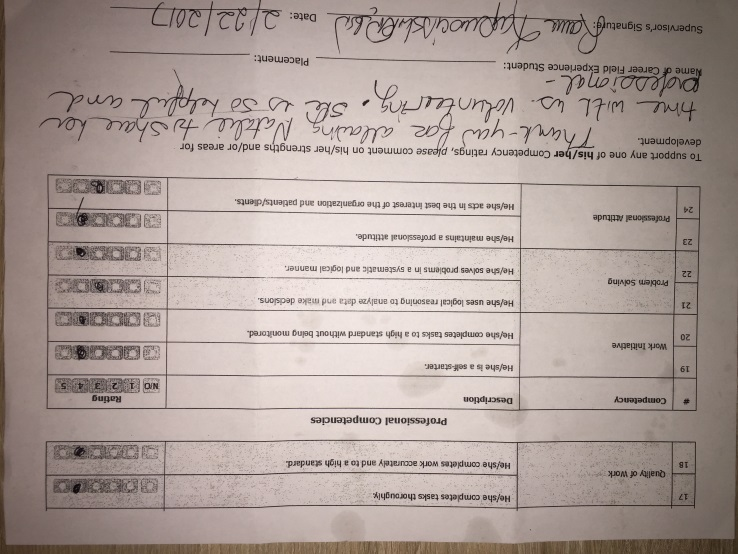 17 Quality of Work He/she completes tasks thoroughly.
18 He/she completes work accurately and to a high standard.
Professional Competencies
# Competency Description Rating
N/O 1 2 3 4 5
19 Work Initiative He/she is a self-starter.
20 He/she completes tasks to a high standard without being monitored.
21 Problem Solving He/she uses logical reasoning to analyze data and make decisions.
22 He/she solves problems in a systematic and logical manner.
23 Professional Attitude He/she maintains a professional attitude.
24 He/she acts in the best interest of the organization and patients/clients.
To support any one of his/her Competency ratings, please comment on his/her strengths and/or areas for
development.
Thank-you for allowing Natalie to share her
time with us volunteering. She is so helpful and
professional-
Name of Career Field Experience Student: Placement:
Supervisor's Signature: Date: 2/22/2017